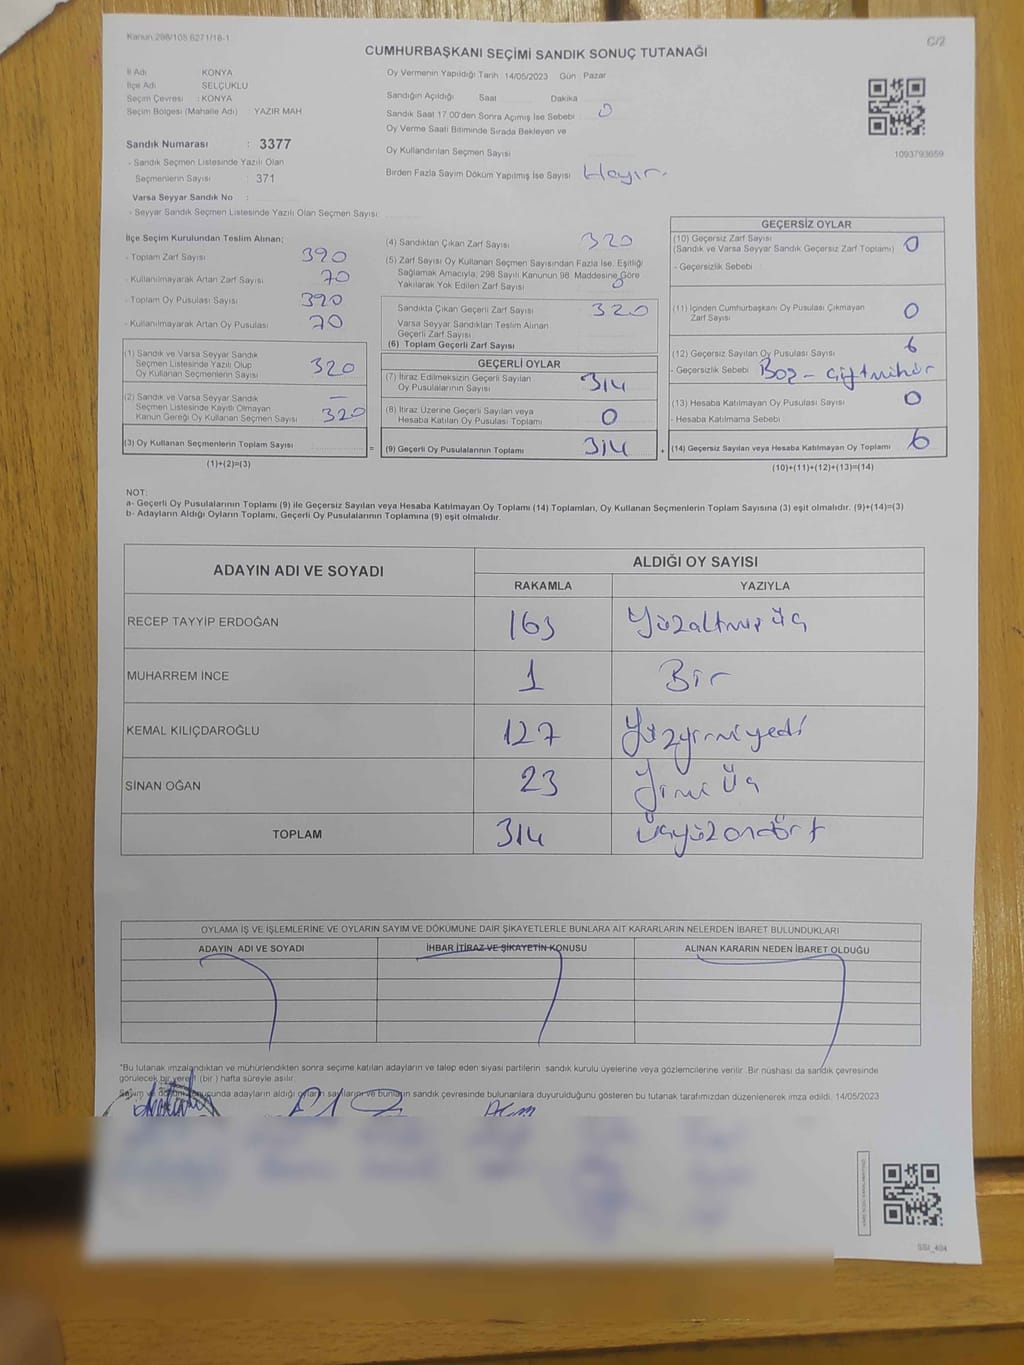 Kanun 298/105 6271/18-1
C/2
CUMHURBAŞKANI SEÇİMİ SANDIK SONUÇ TUTANAĞI
İl Adı : KONYA
İlçe Adı : SELÇUKLU
Seçim Çevresi : KONYA
Seçim Bölgesi (Mahalle Adı) : YAZIR MAH
Sandık Numarası : 3377
- Sandık Seçmen Listesinde Yazılı Olan
Seçmenlerin Sayısı : 371
Varsa Seyyar Sandık No :
- Seyyar Sandık Seçmen Listesinde Yazılı Olan Seçmen Sayısı:
Oy Vermenin Yapıldığı Tarih : 14/05/2023 Gün : Pazar
Sandığın Açıldığı Saat Dakika
Sandık Saat 17.00'den Sonra Açımış İse Sebebi : 0
Oy Verme Saati Bitiminde Sırada Bekleyen ve
Oy Kullandırılan Seçmen Sayısı
Birden Fazla Sayım Döküm Yapılmış İse Sayısı Hayır.
1093793659
İlçe Seçim Kurulundan Teslim Alınan;
- Toplam Zarf Sayısı 390
- Kullanılmayarak Artan Zarf Sayısı 70
- Toplam Oy Pusulası Sayısı 390
- Kullanılmayarak Artan Oy Pusulası 70
(1) Sandık ve Varsa Seyyar Sandık
Seçmen Listesinde Yazılı Olup
Oy Kullanan Seçmenlerin Sayısı 320
(2) Sandık ve Varsa Seyyar Sandık –
Seçmen Listesinde Kayıtlı Olmayan
Kanun Gereği Oy Kullanan Seçmen Sayısı 320
(3) Oy Kullanan Seçmenlerin Toplam Sayısı =
(1)+(2)=(3)
(4) Sandıktan Çıkan Zarf Sayısı 320
(5) Zarf Sayısı Oy Kullanan Seçmen Sayısından Fazla İse, Eşitliği
Sağlamak Amacıyla; 298 Sayılı Kanunun 98. Maddesine Göre
Yakılarak Yok Edilen Zarf Sayısı 0
Sandıkta Çıkan Geçerli Zarf Sayısı 320
Varsa Seyyar Sandıktan Teslim Alınan
Geçerli Zarf Sayısı
(6) Toplam Geçerli Zarf Sayısı
GEÇERLİ OYLAR
(7) İtiraz Edilmeksizin Geçerli Sayılan
Oy Pusulalarının Sayısı 314
(8) İtiraz Üzerine Geçerli Sayılan veya
Hesaba Katılan Oy Pusulası Toplamı 0
(9) Geçerli Oy Pusulalarının Toplamı 314 +
GEÇERSİZ OYLAR
(10) Geçersiz Zarf Sayısı
(Sandık ve Varsa Seyyar Sandık Geçersiz Zarf Toplamı) 0
- Geçersizlik Sebebi
(11) İçinden Cumhurbaşkanı Oy Pusulası Çıkmayan
Zarf Sayısı 0
(12) Geçersiz Sayılan Oy Pusulası Sayısı 6
- Geçersizlik Sebebi Boş - çift mühür
(13) Hesaba Katılmayan Oy Pusulası Sayısı 0
- Hesaba Katılmama Sebebi
(14) Geçersiz Sayılan veya Hesaba Katılmayan Oy Toplamı 6
(10)+(11)+(12)+(13)=(14)
NOT:
a- Geçerli Oy Pusulalarının Toplamı (9) ile Geçersiz Sayılan veya Hesaba Katılmayan Oy Toplamı (14) Toplamları, Oy Kullanan Seçmenlerin Toplam Sayısına (3) eşit olmalıdır. (9)+(14)=(3)
b- Adayların Aldığı Oyların Toplamı, Geçerli Oy Pusulalarının Toplamına (9) eşit olmalıdır.
ADAYIN ADI VE SOYADI
ALDIĞI OY SAYISI
RAKAMLA YAZIYLA
RECEP TAYYİP ERDOĞAN 163 Yüzaltmış üç
MUHARREM İNCE 1 Bir
KEMAL KILIÇDAROĞLU 127 Yüzyirmiyedi
SİNAN OĞAN 23 Yirmi Üç
TOPLAM 314 Üçyüzondört
OYLAMA İŞ VE İŞLEMLERİNE VE OYLARIN SAYIM VE DÖKÜMÜNE DAİR ŞİKAYETLERLE BUNLARA AİT KARARLARIN NELERDEN İBARET BULUNDUKLARI
ADAYIN ADI VE SOYADI İHBAR İTİRAZ VE ŞİKAYETİN KONUSU ALINAN KARARIN NEDEN İBARET OLDUĞU
*Bu tutanak imzalandıktan ve mühürlendikten sonra seçime katılan adayların ve talep eden siyasi partilerin sandık kurulu üyelerine veya gözlemcilerine verilir. Bir nüshası da sandık çevresinde
görülecek bir yere 1 (bir) hafta süreyle asılır.
Sayım ve döküm sonucunda adayların aldığı oyların sayılarını ve bunların sandık çevresinde bulunanlara duyurulduğunu gösteren bu tutanak tarafımızdan düzenlenerek imza edildi. 14/05/2023